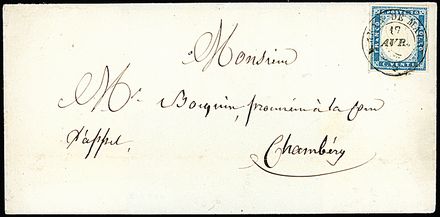 17
AVR.
Monsieur
Mr. Bocquin, procureur à la Cour
d'appel,
Chambéry